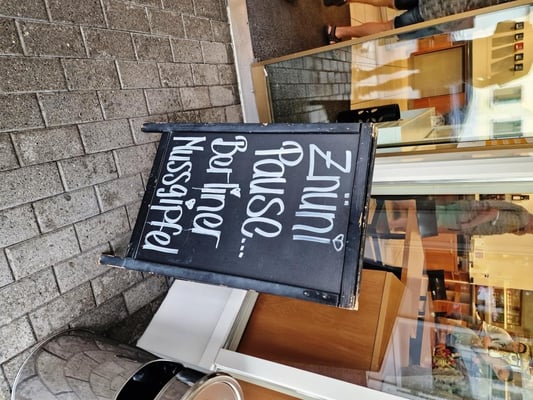 Znüni
Pause...
Berliner
Nussgipfel